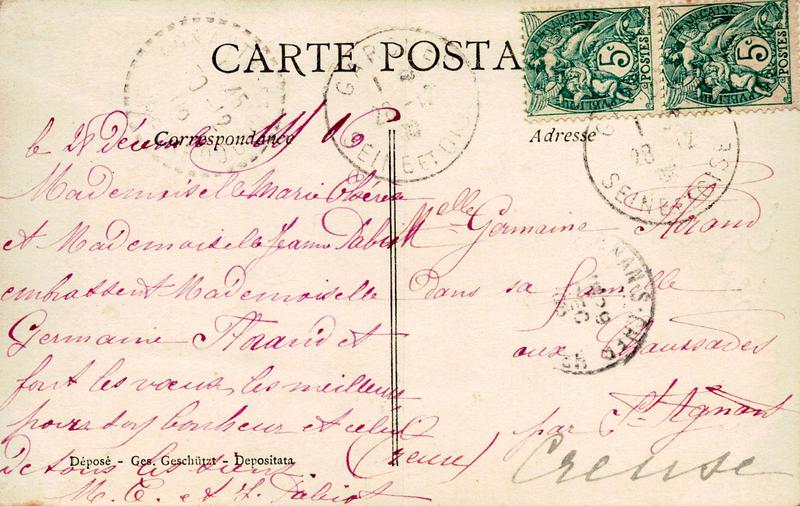 CARTE POSTA
FRANÇAISE
5c
POSTES
FRANÇAISE
5c
POSTES
SEINE ET OISE
SEINE ET OISE
Correspondance
Adresse
le 28 décembre
Mademoiselle Marie Thérèse
et Mademoiselle Jeanne Pabiot
embrassent Mademoiselle
Germaine et
font les vœux les meilleurs
pour son bonheur et celui
de tous les siens
M. T. et J. Pabiot
Melle Germaine
dans sa famille
aux Chaussades
par St Agnant
(Creuse)
Creuse
Déposé - Ges. Geschützt - Depositata